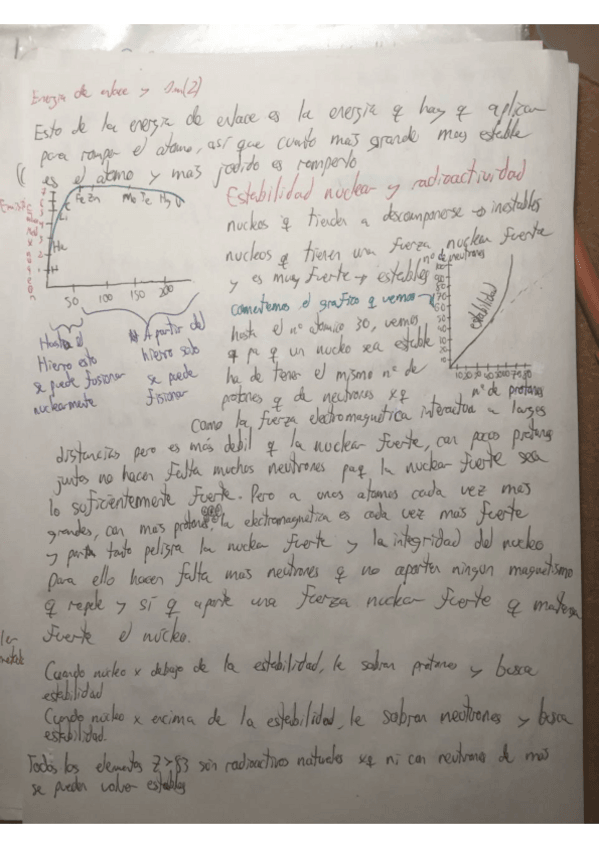 Energía de enlace y Δm(2)
Esto de la energia de enlace es la energia q hay q aplicar
para romper el atomo, así que cuanto mas grande mas estable
es el atomo y mas jodido es romperlo
Li
He
H
Fe Zn
Mo Te Hg U
50 100 150 200
Hasta el
Hierro esto
se puede fusionar
nuclearmente
A partir del
hierro solo
se puede
fisionar
Estabilidad nuclear y radioactividad
nucleos q tienden a descomponerse → inestables
nucleos q tienen una fuerza nuclear fuerte
y es muy fuerte → estables
comentemos el grafico q vemos →
hasta el nº atomico 30, vemos
q pa q un nucleo sea estable
ha de tener el mismo nº de
protones q de neutrones xq
nº de neutrones
100
90
80
70
60
50
40
30
20
10
estabilidad
10 20 30 40 50 60 70 80
nº de protones
Como la fuerza electromagnética interactua a largas
distancias pero es más debil q la nuclear fuerte, con pocos protones
juntos no hacen falta muchos neutrones paq la nuclear fuerte sea
lo suficientemente fuerte. Pero a unos atomos cada vez mas
grandes, con mas protones, la electromagnética es cada vez mas fuerte
y por tanto peligra la nuclear fuerte y la integridad del nucleo
Para ello hacen falta mas neutrones q no aporten ningun magnetismo
q repele y sí q aporte una fuerza nuclear fuerte q mantenga
fuerte el núcleo.
Cuando núcleo x debajo de la estabilidad, le sobran protones y busca
estabilidad
Cuando núcleo x encima de la estabilidad, le sobran neutrones y busca
estabilidad.
Todos los elementos Z>83 són radioactivos naturales xq ni con neutrones de mas
se pueden volver estables